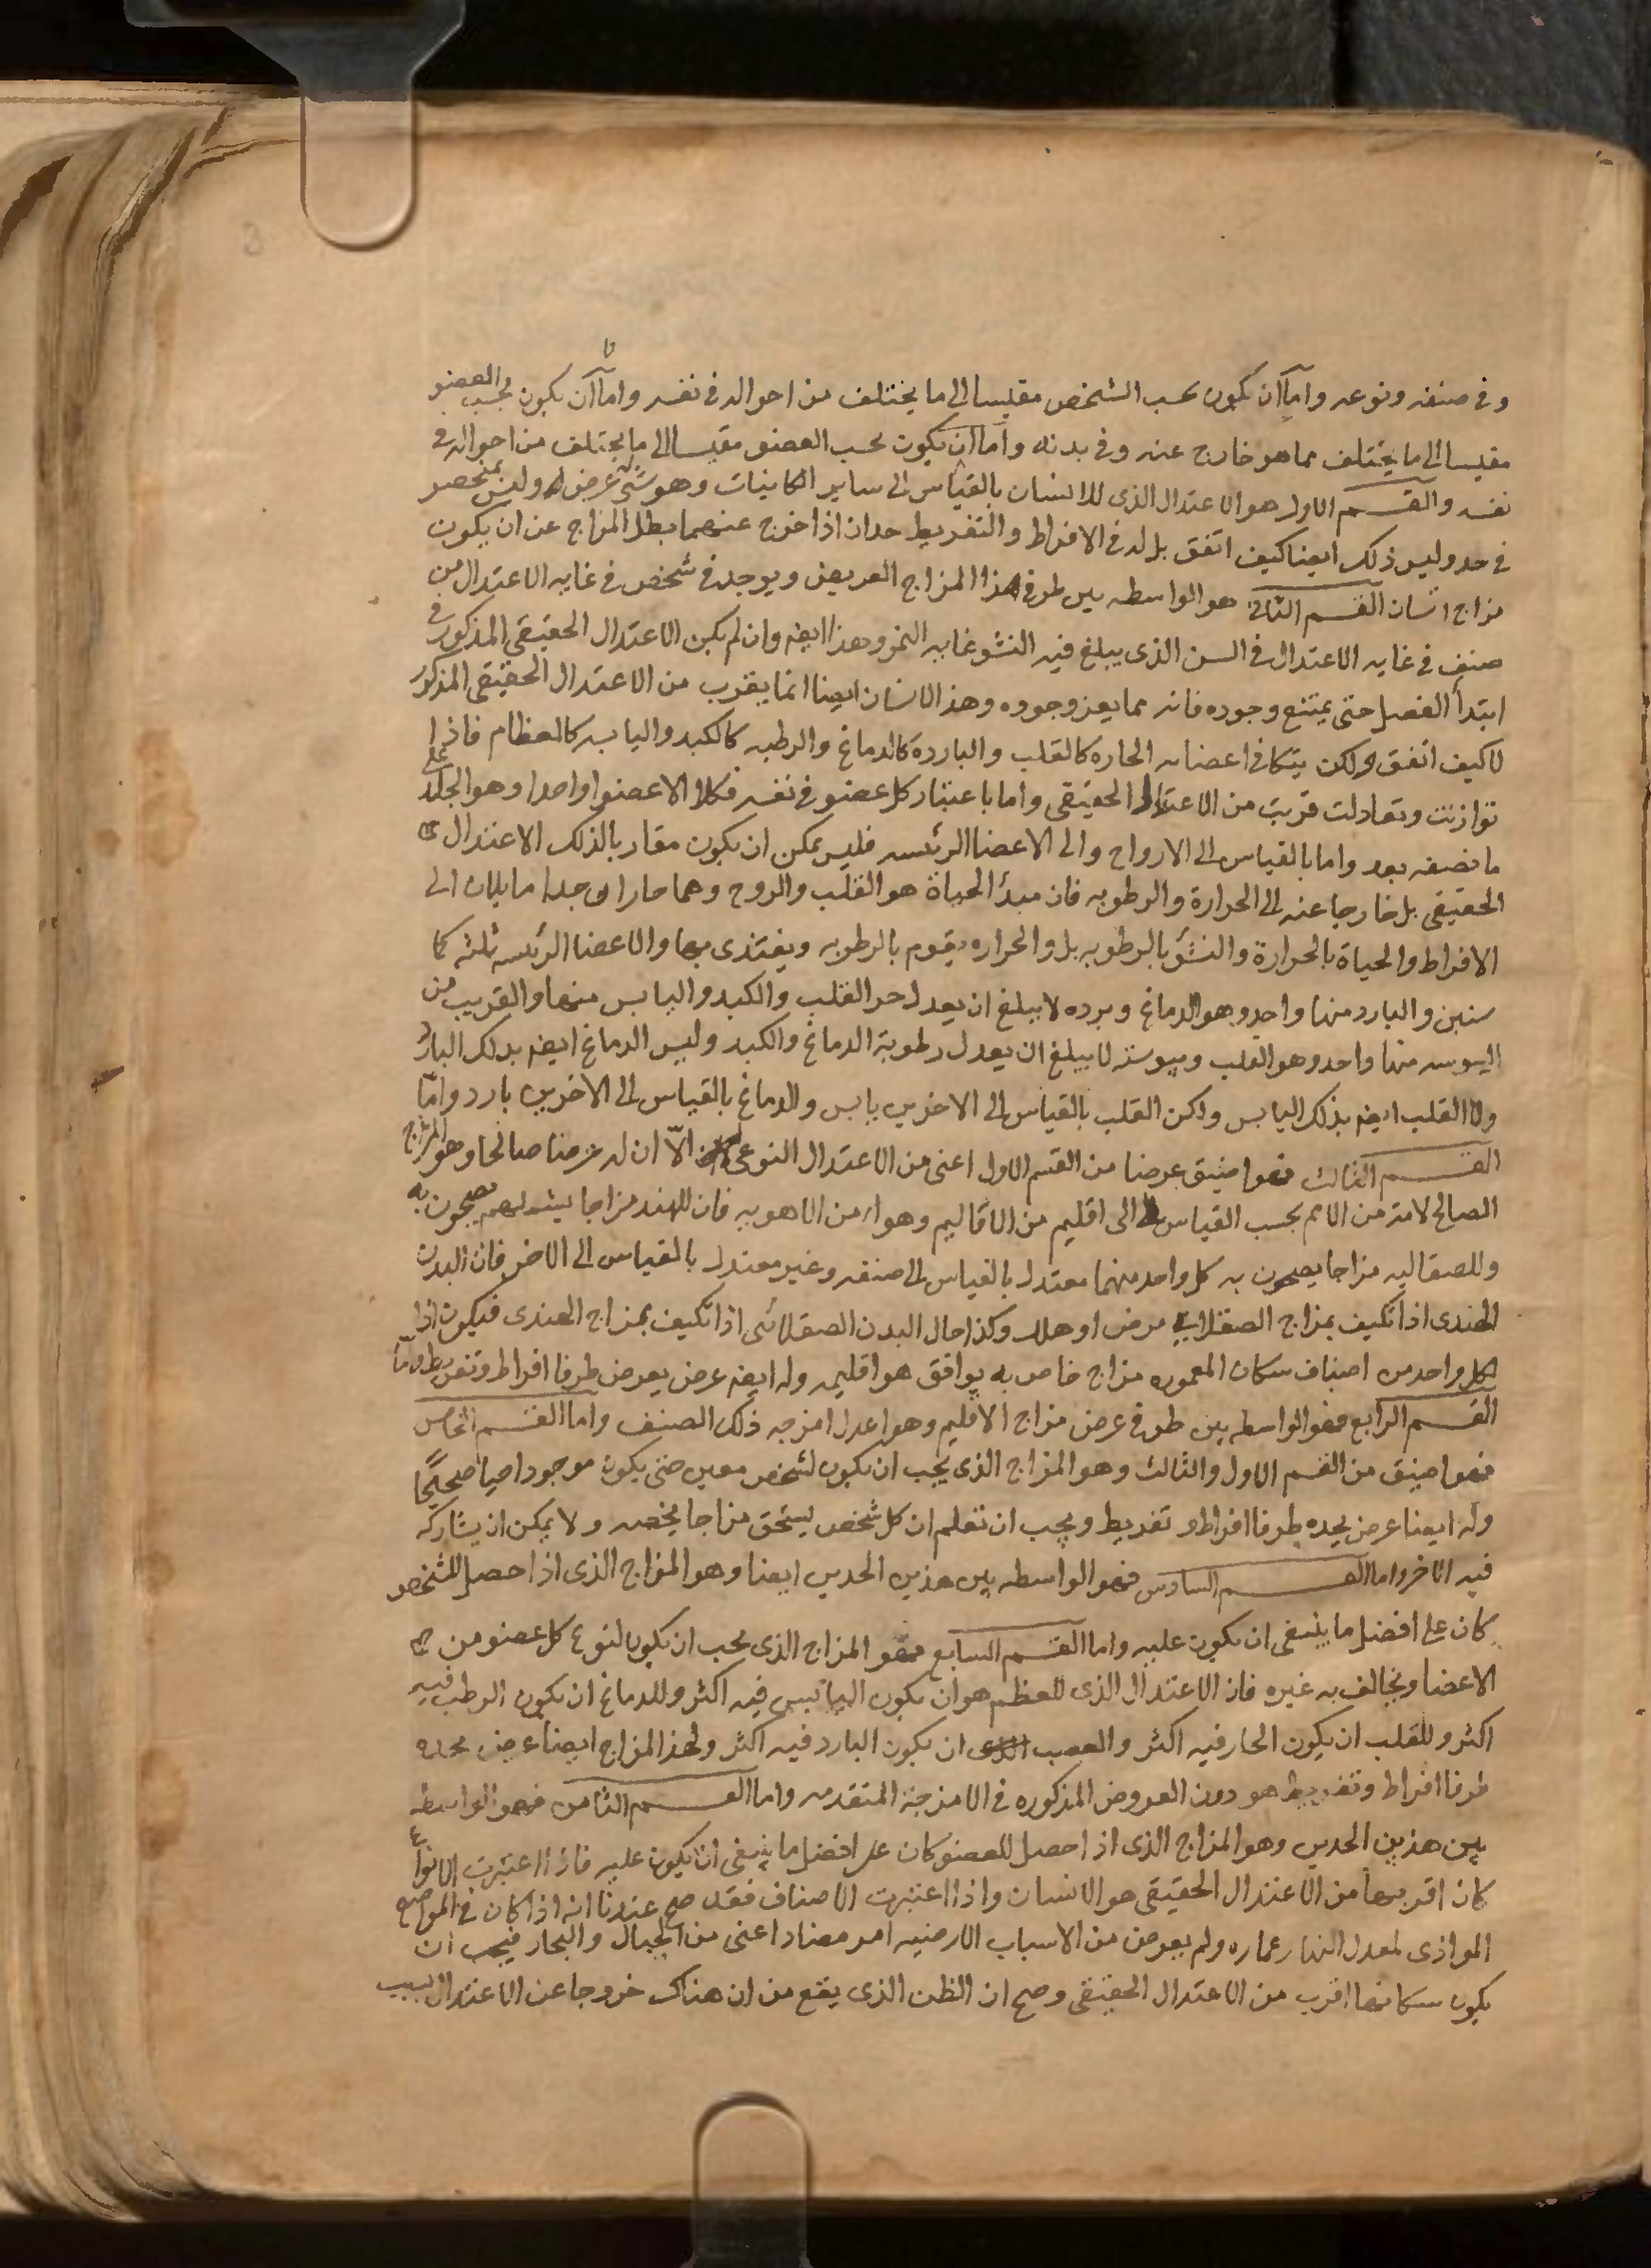 وفى صنفه ونوعه واما ان يكون بحسب الشخص مقيسا الى ما يختلف من احواله فى نفسه واما ان يكون بحسب العضو
مقيسا الى ما يختلف مما هو خارج عنه وفى بدنه واما ان يكون بحسب العضو مقيسا الى ما يختلف من احواله فى
نفسه والقسم الاول هو الاعتدال الذى للانسان بالقياس الى ساير الكاينات وهو شى له عرض وليس منحصر
فى حد وليس ذلك ايضا كيف اتفق بل له فى الافراط والتفريط حدان اذا خرج عنهما بطل المزاج عن ان يكون
مزاج انسان القسم الثانى هو الواسطه بين طرفى هذا المزاج العريض ويوجد فى شخص فى غايه الاعتدال من
صنف فى غايه الاعتدال فى السن الذى يبلغ فيه النشو غايه النمو وهذا ايضا وان لم يكن الاعتدال الحقيقى المذكور فى
ابتدأ الفصل حتى يمتنع وجوده فانه مما يعز وجوده وهذا الانسان ايضا انما يقرب من الاعتدال الحقيقى المذكور
لا كيف اتفق ولكن يتكافى اعضائه الحاره كالقلب والبارده كالدماغ والرطبه كالكبد واليابسه كالعظام فاذا
توازنت وتعادلت قربت من الاعتدال الحقيقى واما باعتبار كل عضو فى نفسه فكلا الا عضوا واحدا وهو الجلد على
ما نصفه بعد واما بالقياس الى الارواح والى الاعضا الرئيسه فليس يمكن ان يكون مقاربا لذلك الاعتدال
الحقيقى بل خارجا عنه الى الحرارة والرطوبه فان مبدأ الحياة هو القلب والروح وهما حاران جدا مايلان الى
الافراط والحياة بالحرارة والنشؤ بالرطوبه بل والحراره يقوم بالرطوبه ويغتذى بها والاعضا الرئيسه ثلثه كما
سنبين والبارد منها واحد وهو الدماغ وبرده لا يبلغ ان يعدل حر القلب والكبد واليابس منها والقريب من
اليبوسه منها واحد وهو القلب ويبوسته لا يبلغ ان يعدل رطوبة الدماغ والكبد وليس الدماغ ايضا بذلك البارد
ولا القلب ايضا بذلك اليابس ولكن القلب بالقياس الى الاخرين يابس والدماغ بالقياس الى الاخرين بارد وامّا
القسم الثالث فهوا ضيق عرضا من القسم الاول اعنى من الاعتدال النوعى الّا ان له عرضا صالحا وهو المزاج
الصالح لامة من الامم بحسب القياس الى اقليم من الاقاليم وهواء من الاهويه فان للهند مزاجا يشملهم يصحون به
وللصقاليه مزاجا يصحون به كل واحد منهما معتدل بالقياس الى صنفه وغير معتدل بالقياس الى الاخر فان البدن
الهندى اذا تكيف بمزاج الصقلابى مرض او هلك وكذا حال البدن الصقلابى اذا تكيف بمزاج الهندى فيكون اذا
لكل واحد من اصناف سكان المعموره مزاج خاص به يوافق هوا اقليمه وله ايضا عرض يعرض طرفا افراط وتفريط واما
القسم الرابع فهو الواسطه بين طرفى عرض مزاج الاقليم وهو اعدل امزجه ذلك الصنف واما القسم الخامس
فهوا ضيق من القسم الاول والثالث وهو المزاج الذى يجب ان يكون لشخص معين حتى يكون موجودا حيا صحيحًا
وله ايضا عرض يحده طرفا افراط و تفريط ويجب ان تعلم ان كل شخص يستحق مزاجا يخصه ولا يمكن ان يشاركه
فيه الاخر واما القسم السادس فهو الواسطه بين هذين الحدين ايضا وهو المزاج الذى اذا حصل للشخص
كان على افضل ما ينبغى ان يكون عليه واما القسم السابع فهو المزاج الذى يجب ان يكون لنوع كل عضو من
الاعضا ويخالف به غيره فان الاعتدال الذى للعظم هو ان يكون اليابس فيه اكثر وللدماغ ان يكون الرطب فيه
اكثر وللقلب ان يكون الحار فيه اكثر والعصب ان يكون البارد فيه اكثر ولهذا المزاج ايضا عرض يحده
طرفا افراط وتفريط هو دون العروض المذكوره فى الامزجة المتقدمه واما القسم الثامن فهو الواسطه
بين هذين الحدين وهو المزاج الذى اذا حصل للعضو كان على افضل ما ينبغى ان يكون عليه فاذا اعتبرت الانواع
كان اقربها من الاعتدال الحقيقى هو الانسان واذا اعتبرت الاصناف فقد صح عندنا انه اذا كان فى المواضع
الموازى لمعدل النهار عماره ولم يعرض من الاسباب الارضيه امر مضاد اعنى من الجبال والبحار فيجب ان
يكون سكانها اقرب من الاعتدال الحقيقى وصح ان الظن الذى يقع من ان هناك خروجا عن الاعتدال بسبب